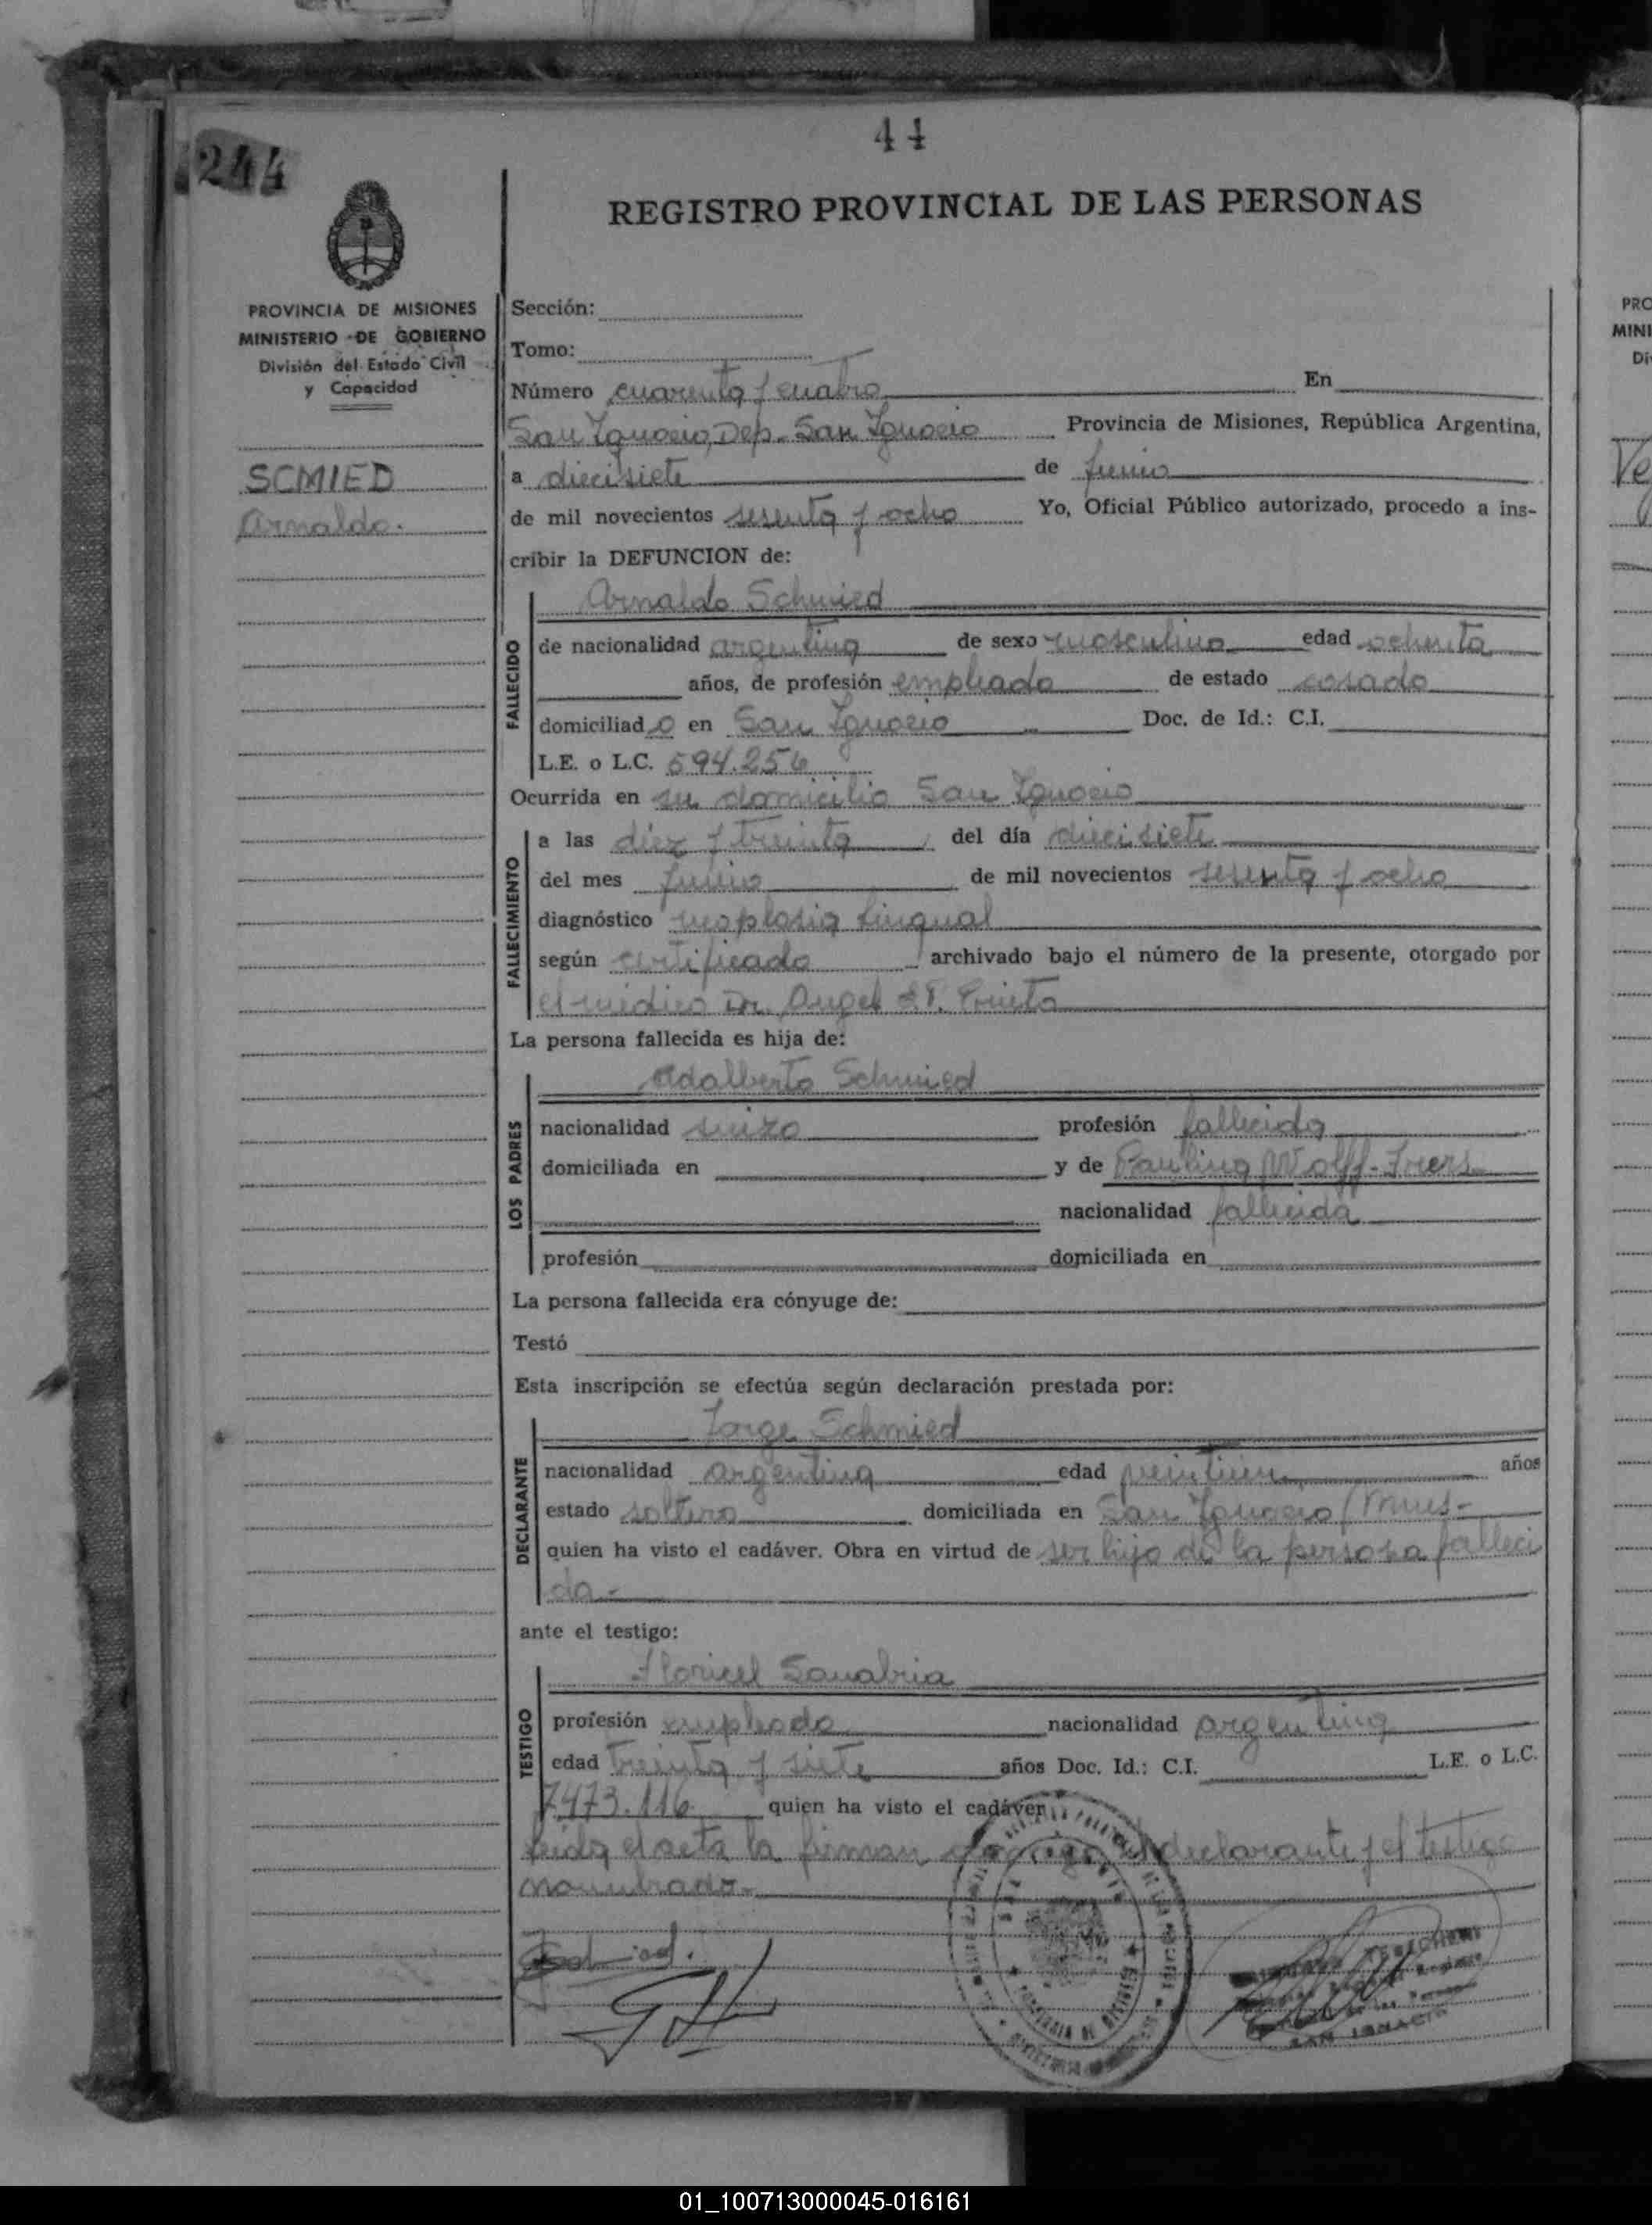 44
244
REGISTRO PROVINCIAL DE LAS PERSONAS
PROVINCIA DE MISIONES
MINISTERIO DE GOBIERNO
División del Estado Civil
y Capacidad
SCMIED
Arnaldo.
Sección:
Tomo:
Número cuarenta y cuatro En
San Ignacio, Dep. San Ignacio Provincia de Misiones, República Argentina,
a diecisiete de junio
de mil novecientos sesenta y ocho Yo, Oficial Público autorizado, procedo a ins-
cribir la DEFUNCION de:
Arnaldo Schmied
FALLECIDO
de nacionalidad argentina de sexo masculino edad ochenta
años, de profesión empleado de estado casado
domiciliad o en San Ignacio Doc. de Id.: C.I.
L.E. o L.C. 594.256
Ocurrida en su domicilio San Ignacio
FALLECIMIENTO
a las diez y treinta del día diecisiete
del mes junio de mil novecientos sesenta y ocho
diagnóstico neoplasia lingual
según certificado archivado bajo el número de la presente, otorgado por
el médico Dr. Angel Prieto
La persona fallecida es hija de:
LOS PADRES
Adalberto Schmied
nacionalidad suizo profesión fallecido
domiciliada en y de Paulina Wolff-
nacionalidad fallecida
profesión domiciliada en
La persona fallecida era cónyuge de:
Testó
Esta inscripción se efectúa según declaración prestada por:
DECLARANTE
Jorge Schmied
nacionalidad argentina edad años
estado soltero domiciliada en San Ignacio (Mnes-
quien ha visto el cadáver. Obra en virtud de ser hijo de la persona falleci
da.-
ante el testigo:
TESTIGO
Floricel Sanabria
profesión empleado nacionalidad argentina
edad treinta y siete años Doc. Id.: C.I. L.E. o L.C.
7473.116 quien ha visto el cadáver
leida el acta la firman conmigo el declarante y el testigo
nombrado.-
SAN IGNACIO
PRO
MINI
Di
01_100713000045-016161